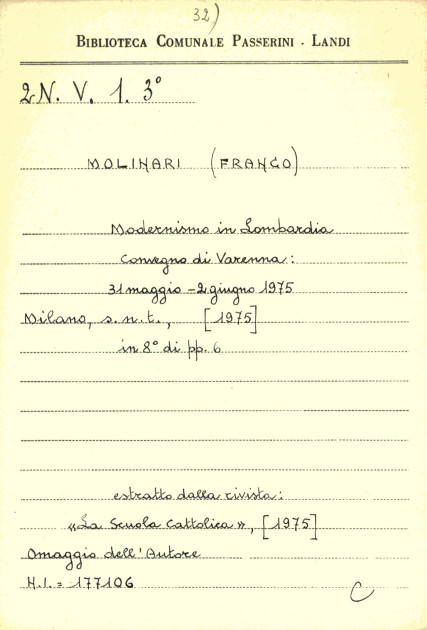 32)
BIBLIOTECA COMUNALE PASSERINI - LANDI
2N. V. 1. 3°
MOLINARI (FRANCO)
Modernismo in Lombardia
Convegno di Varenna:
31 maggio - 2 giugno 1975
Milano, s.n.t., [1975]
in 8° di pp. 6
estratto dalla rivista:
«La Scuola Cattolica», [1975]
Omaggio dell'Autore
N.I. = 177106
C